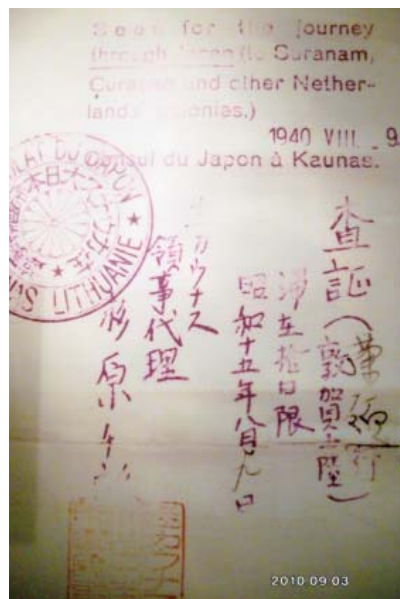 Seen for the journey
through Japan (to Suranam,
Curaçao and other Nether-
lands colonies.)
1940 VIII. 9
Consul du Japon à Kaunas.
CONSULAT DU JAPON
KAUNAS LITHUANIE
査証
(敦賀上陸)
滞在拾日限
昭和十五年八月九日
在カウナス
領事代理
杉原千畝
2010·09·03